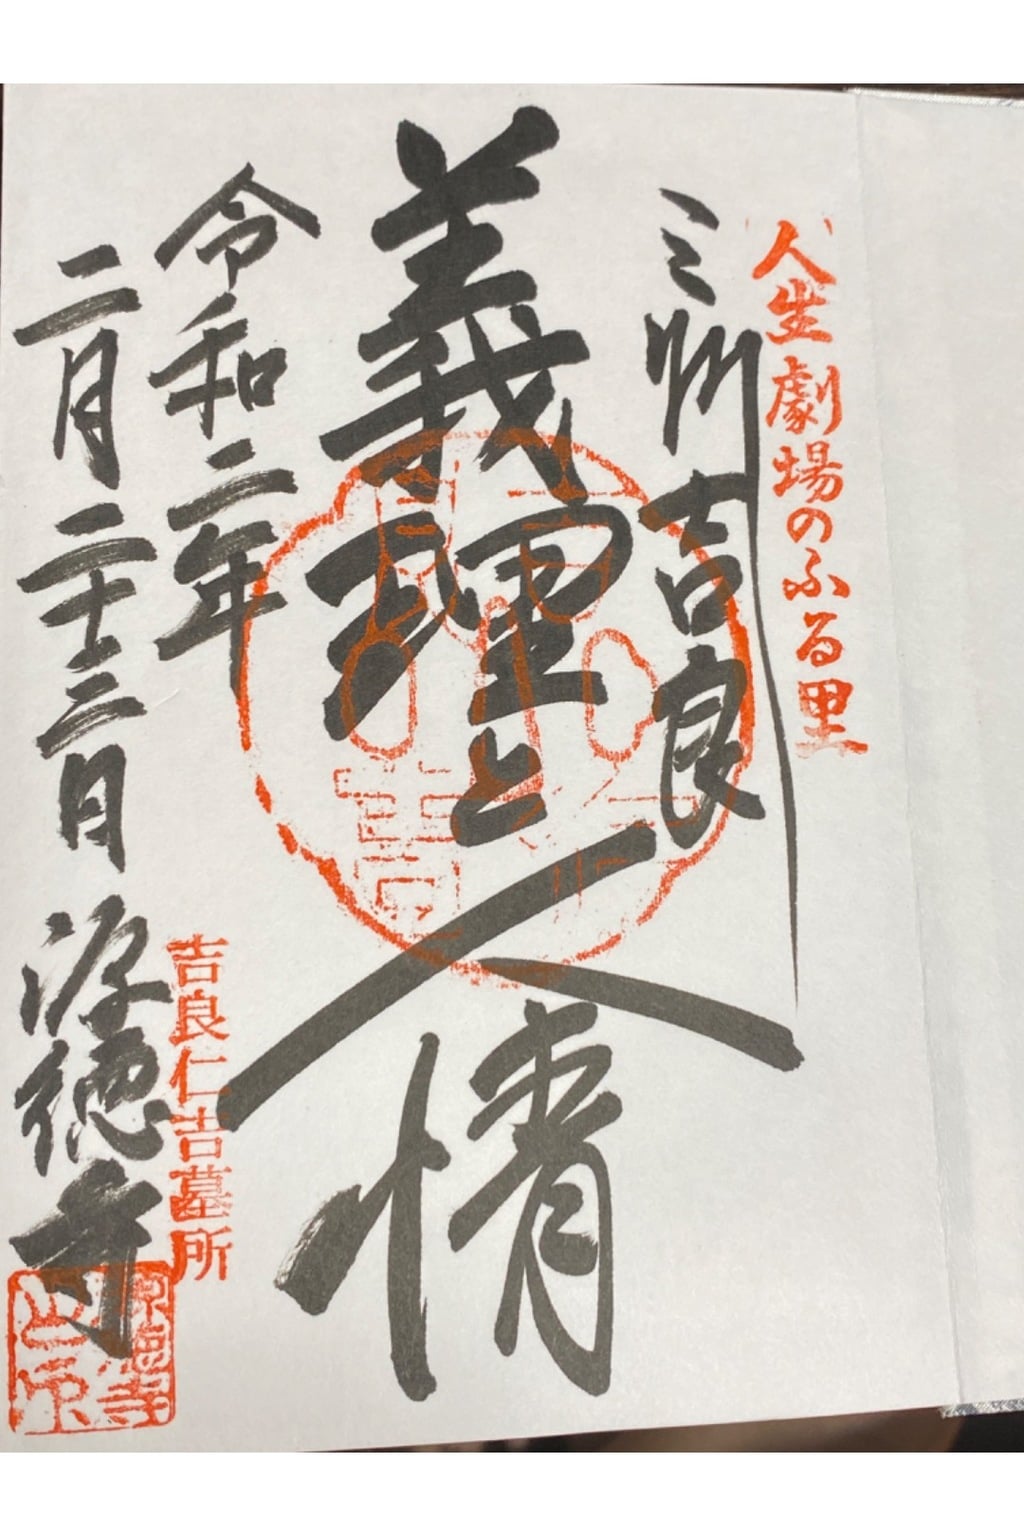 人生劇場のふる里
三州吉良
義理と人情
令和二年
二月二十三日
源徳寺
吉良仁吉墓所
源徳寺